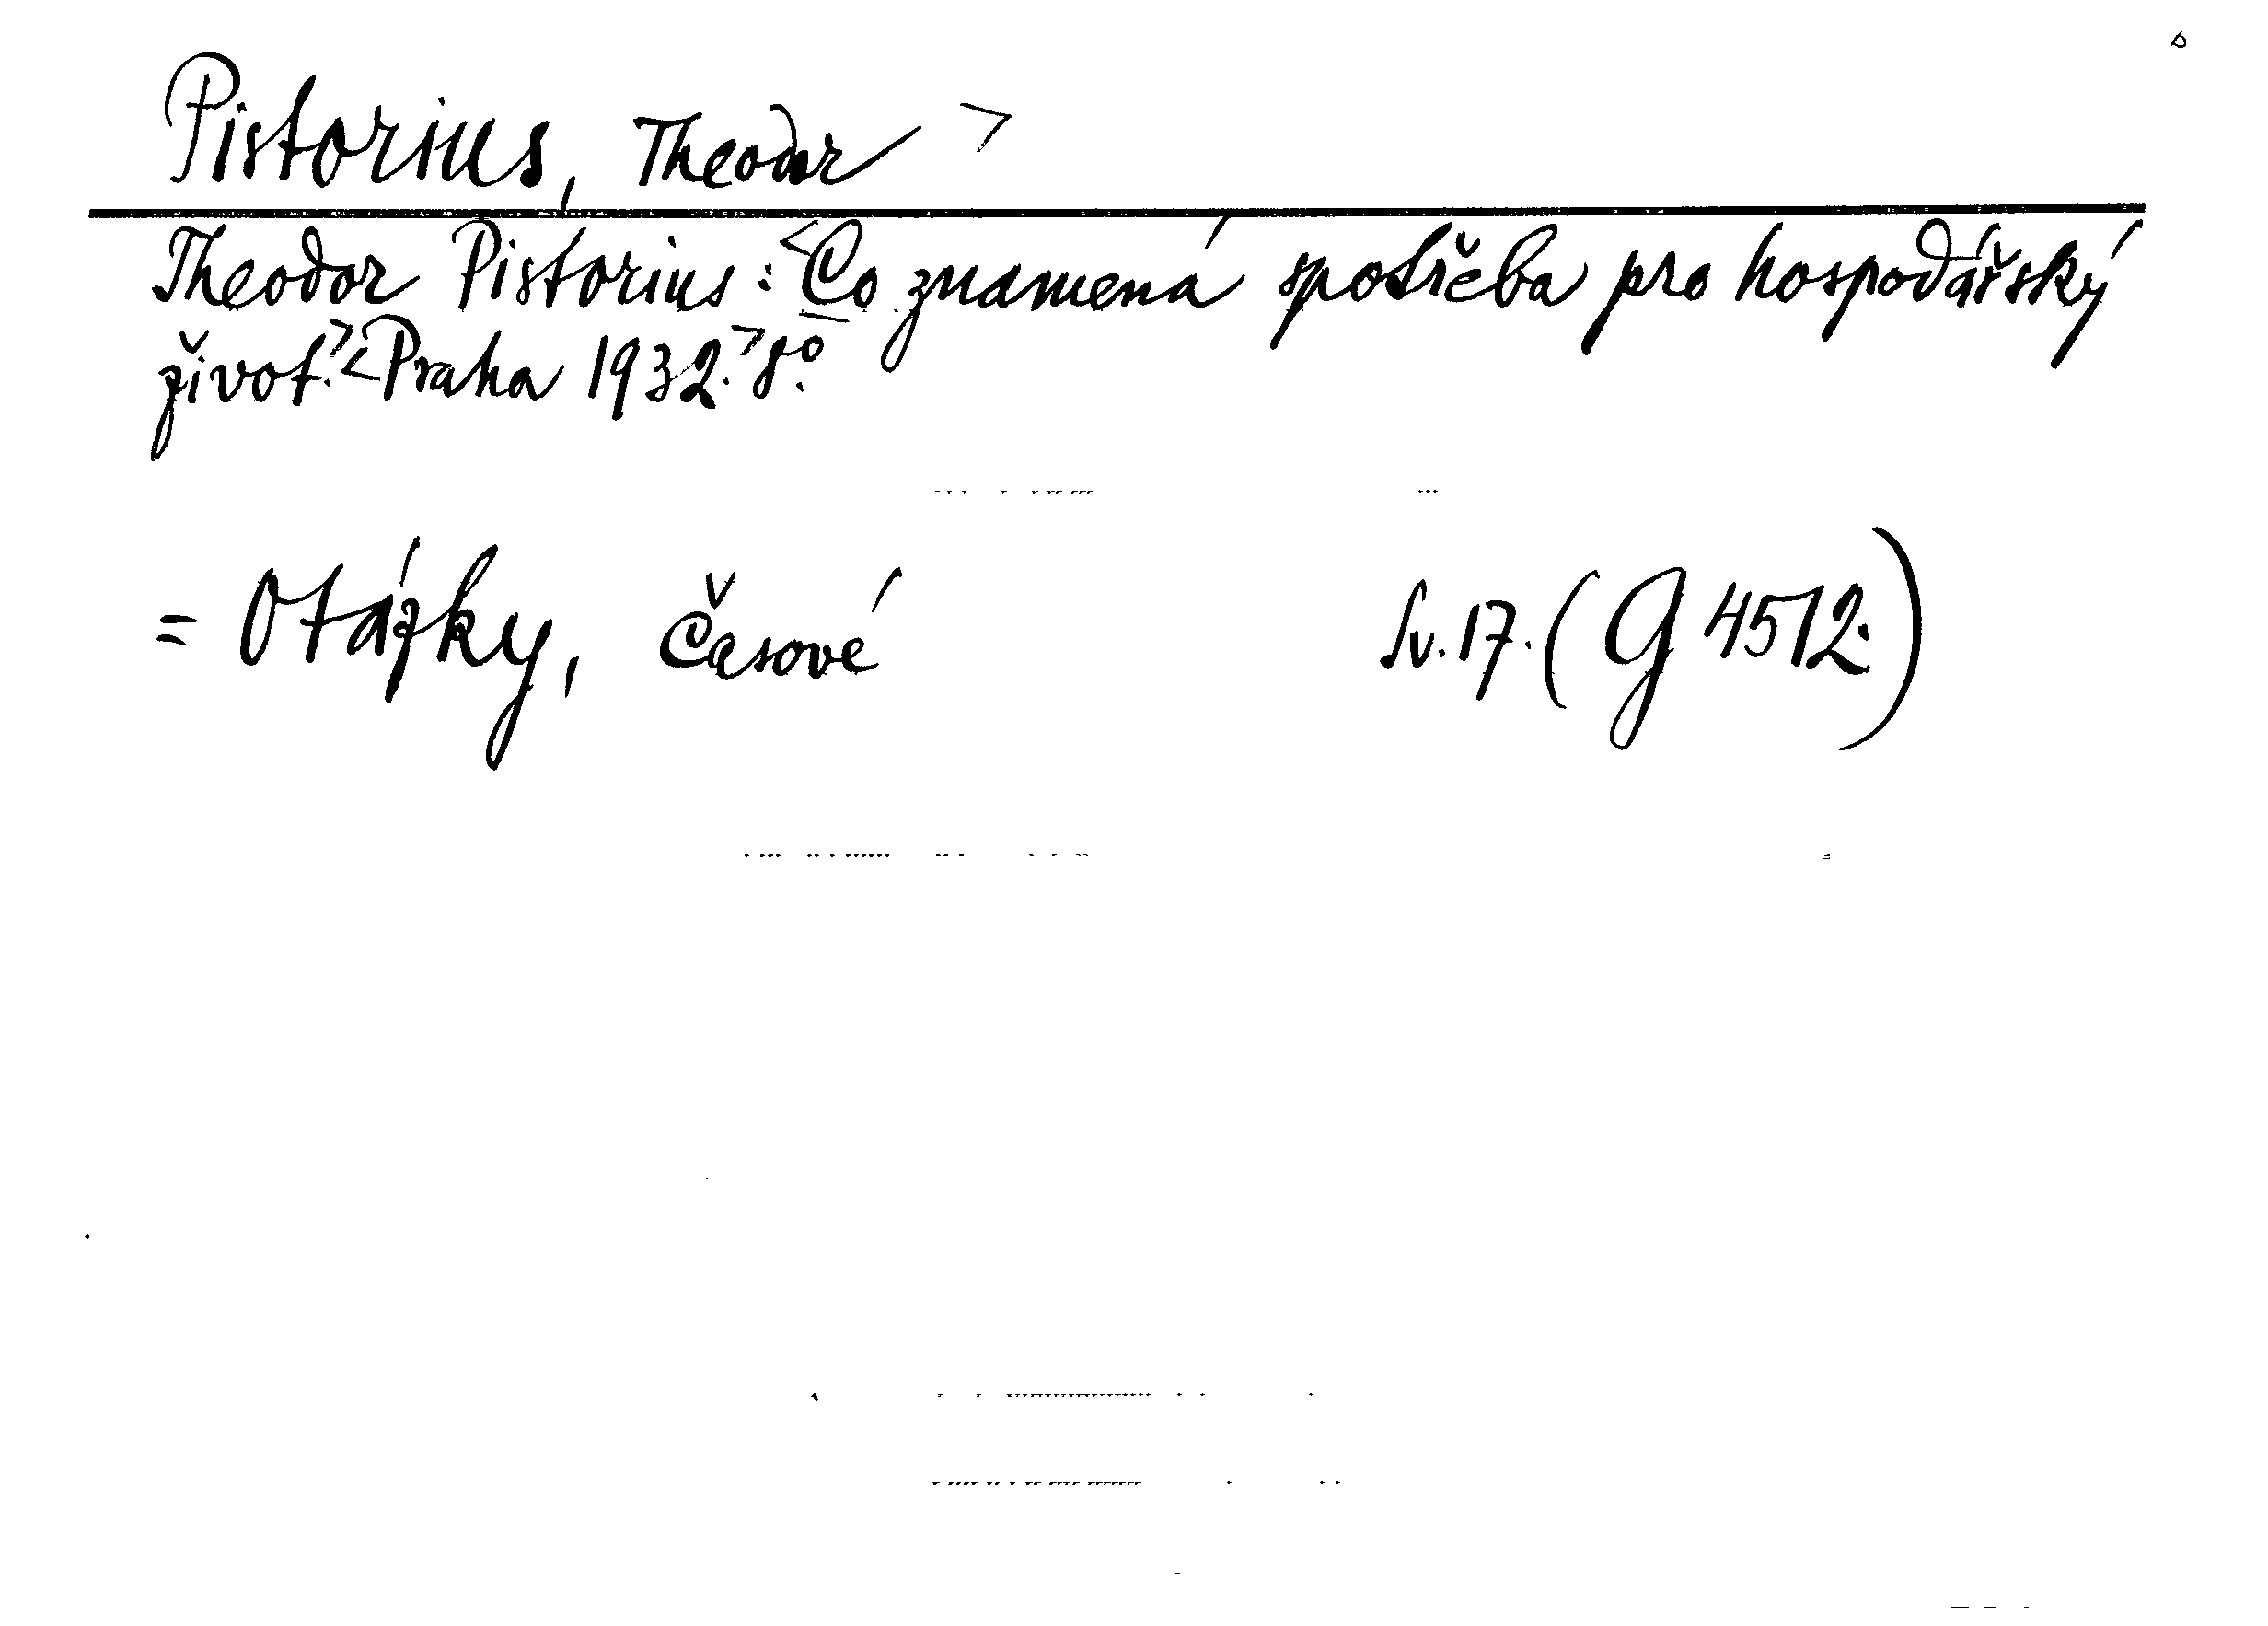 Pistorius, Theodor >
Theodor Pistorius: <Co znamená spotřeba pro hospodářský
život.> <Praha 1932.> 8º.
= Otázky, Časové Sv. 17. (G 4512.)